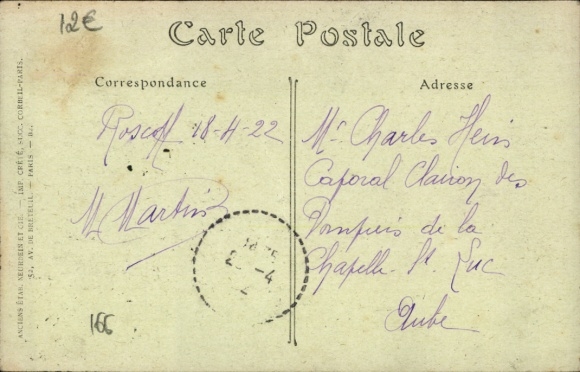 12€
Carte Postale
Correspondance
Adresse
Roscoff 18-4-22
M Martin
Mr Charles Hein
Caporal Clairon des
Pompiers de la
Chapelle St Luc
Aube
18 25
2 -4
166
ANCIENS ÉTAB. NEURDEIN ET CIE. — IMP. CRÉTÉ, SUCC. CORBEIL-PARIS.
52, AV. DE BRETEUIL — PARIS